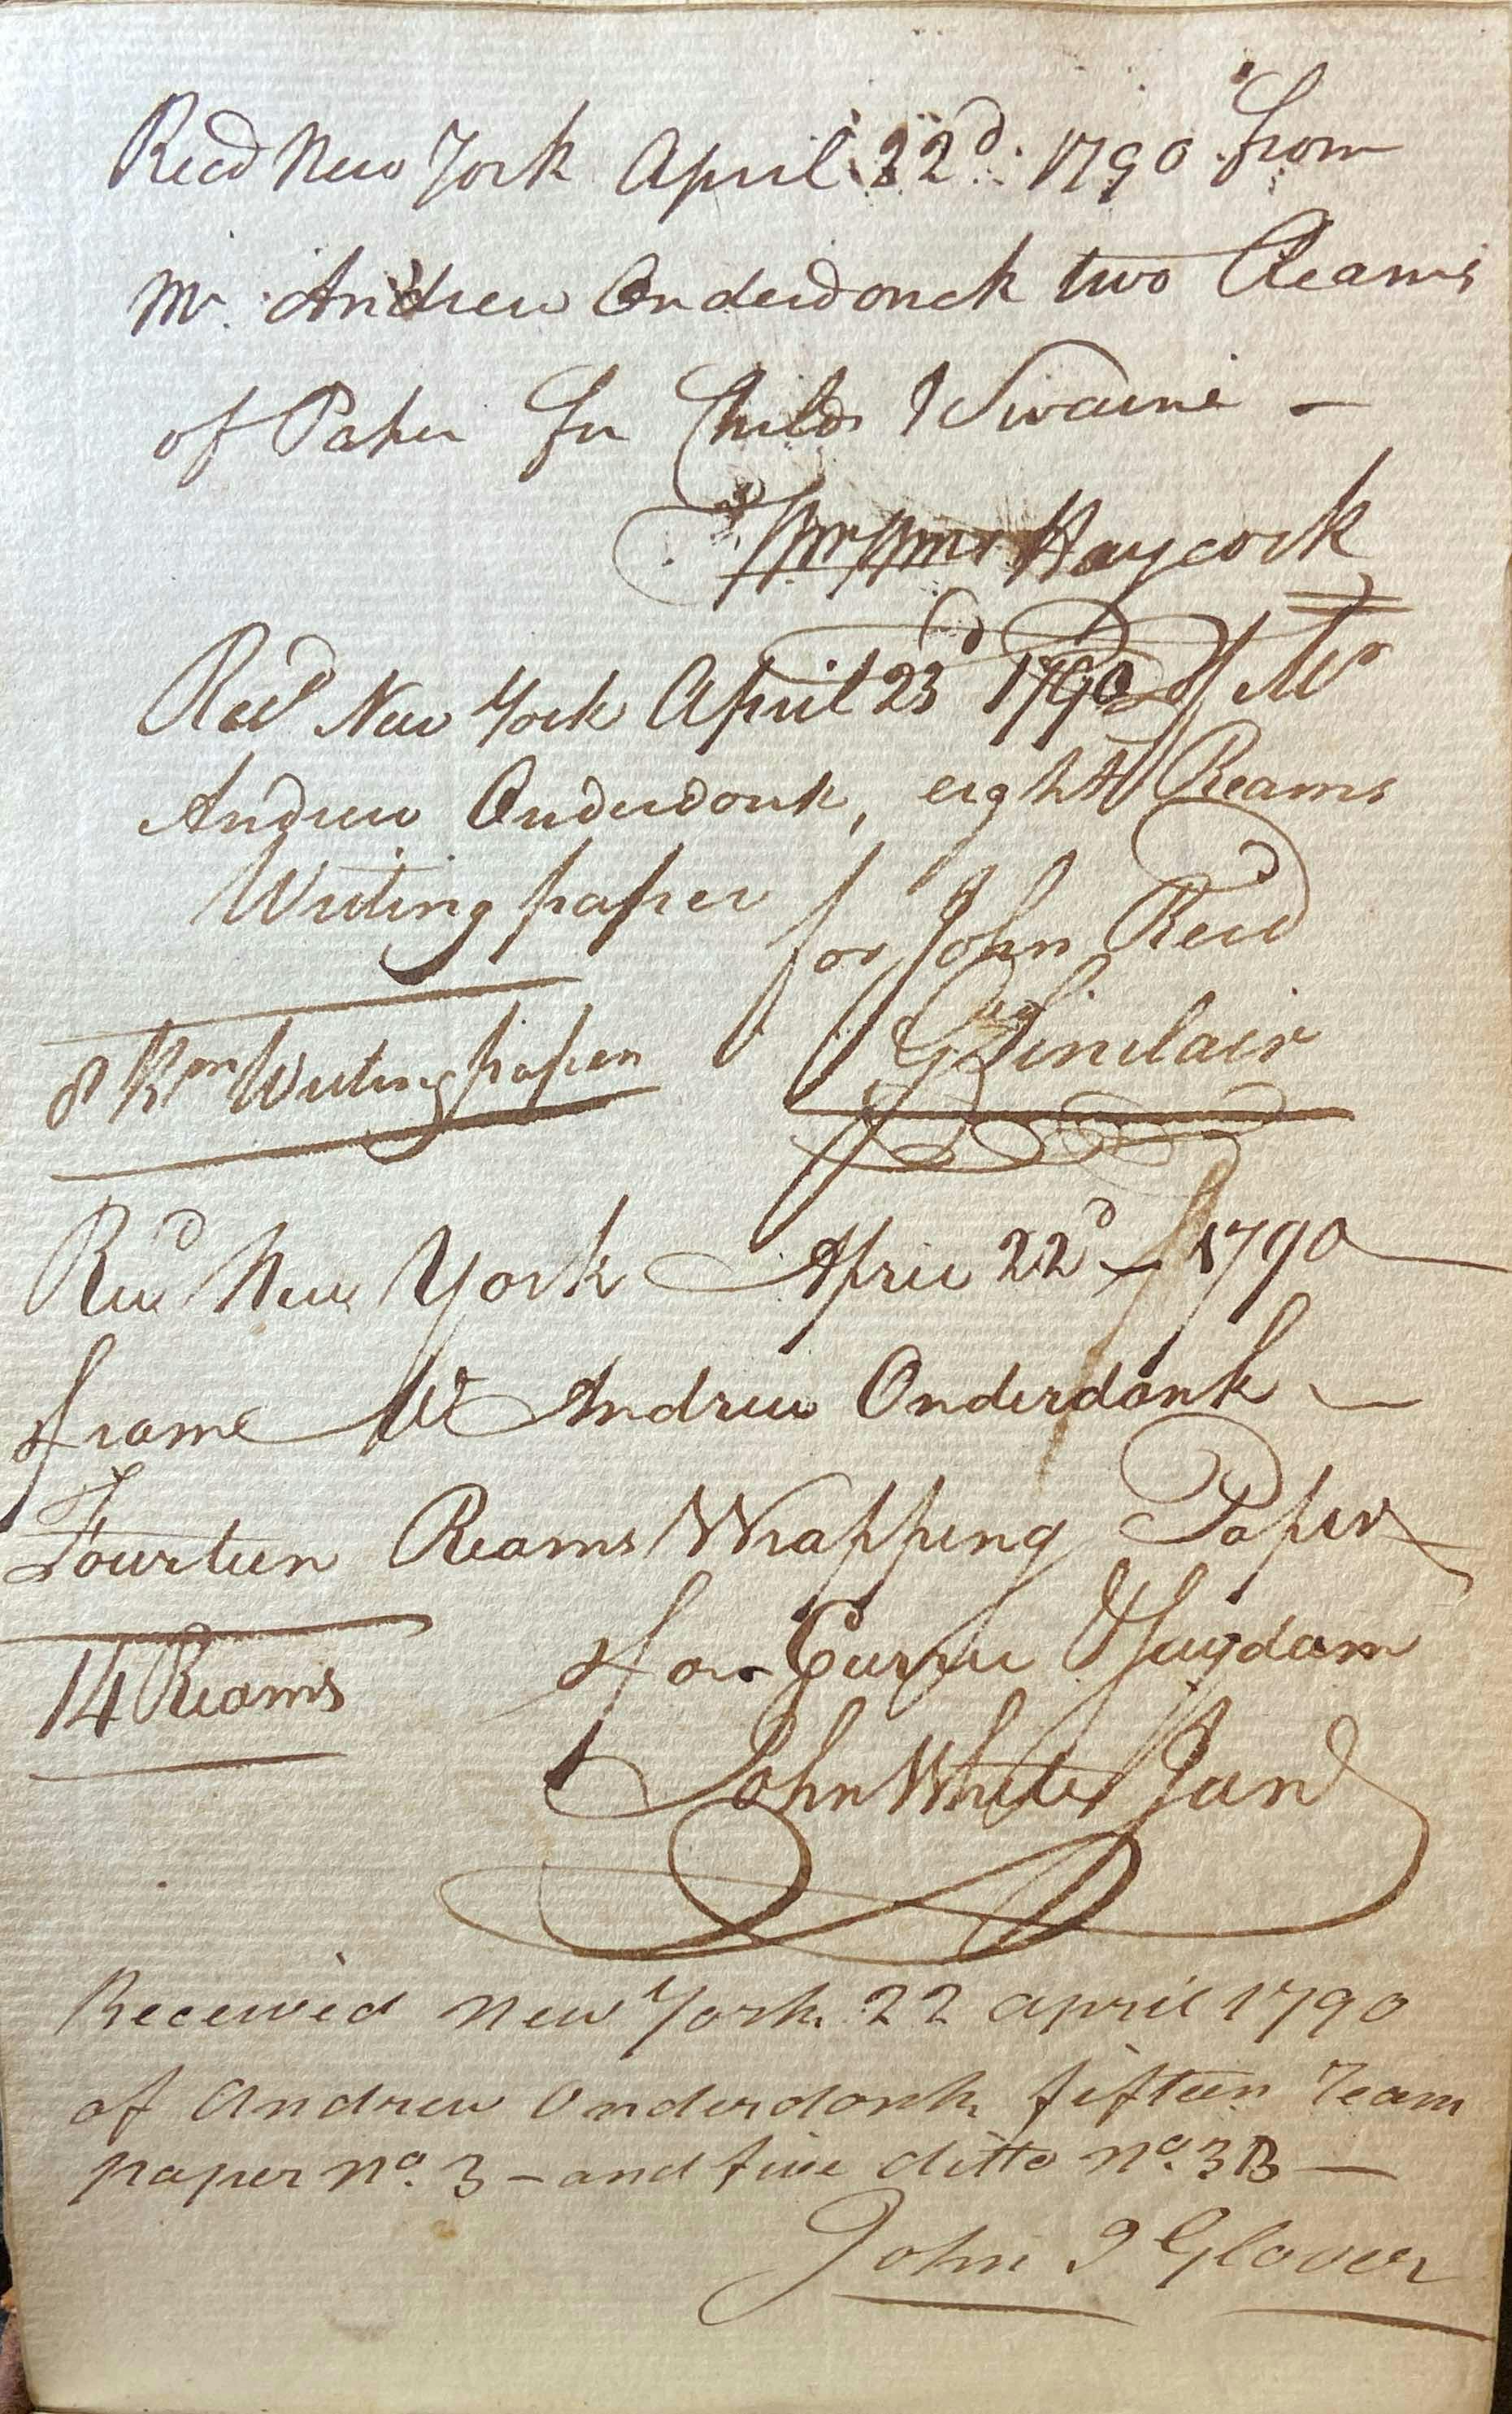 Recd New York April 22d. 1790 from
Mr. Andrew Onderdonck two Reams
of Paper for Childs & Swaine –
Haycock
Recd New York April 23d 1790 of Mr
Andrew Onderdonk, eight Reams
Writing paper for John Reid
8 Rm Writing paper G Sinclair
Recd New York April 22d – 1790
frome Mr Andrew Onderdonk –
Fourteen Reams Wrapping Paper
14 Reams for
John White Junr
Received New York 22 april 1790
of Andrew Onderdonk fifteen ream
paper No. 3 – and five ditto No. 3B –
John I Glover